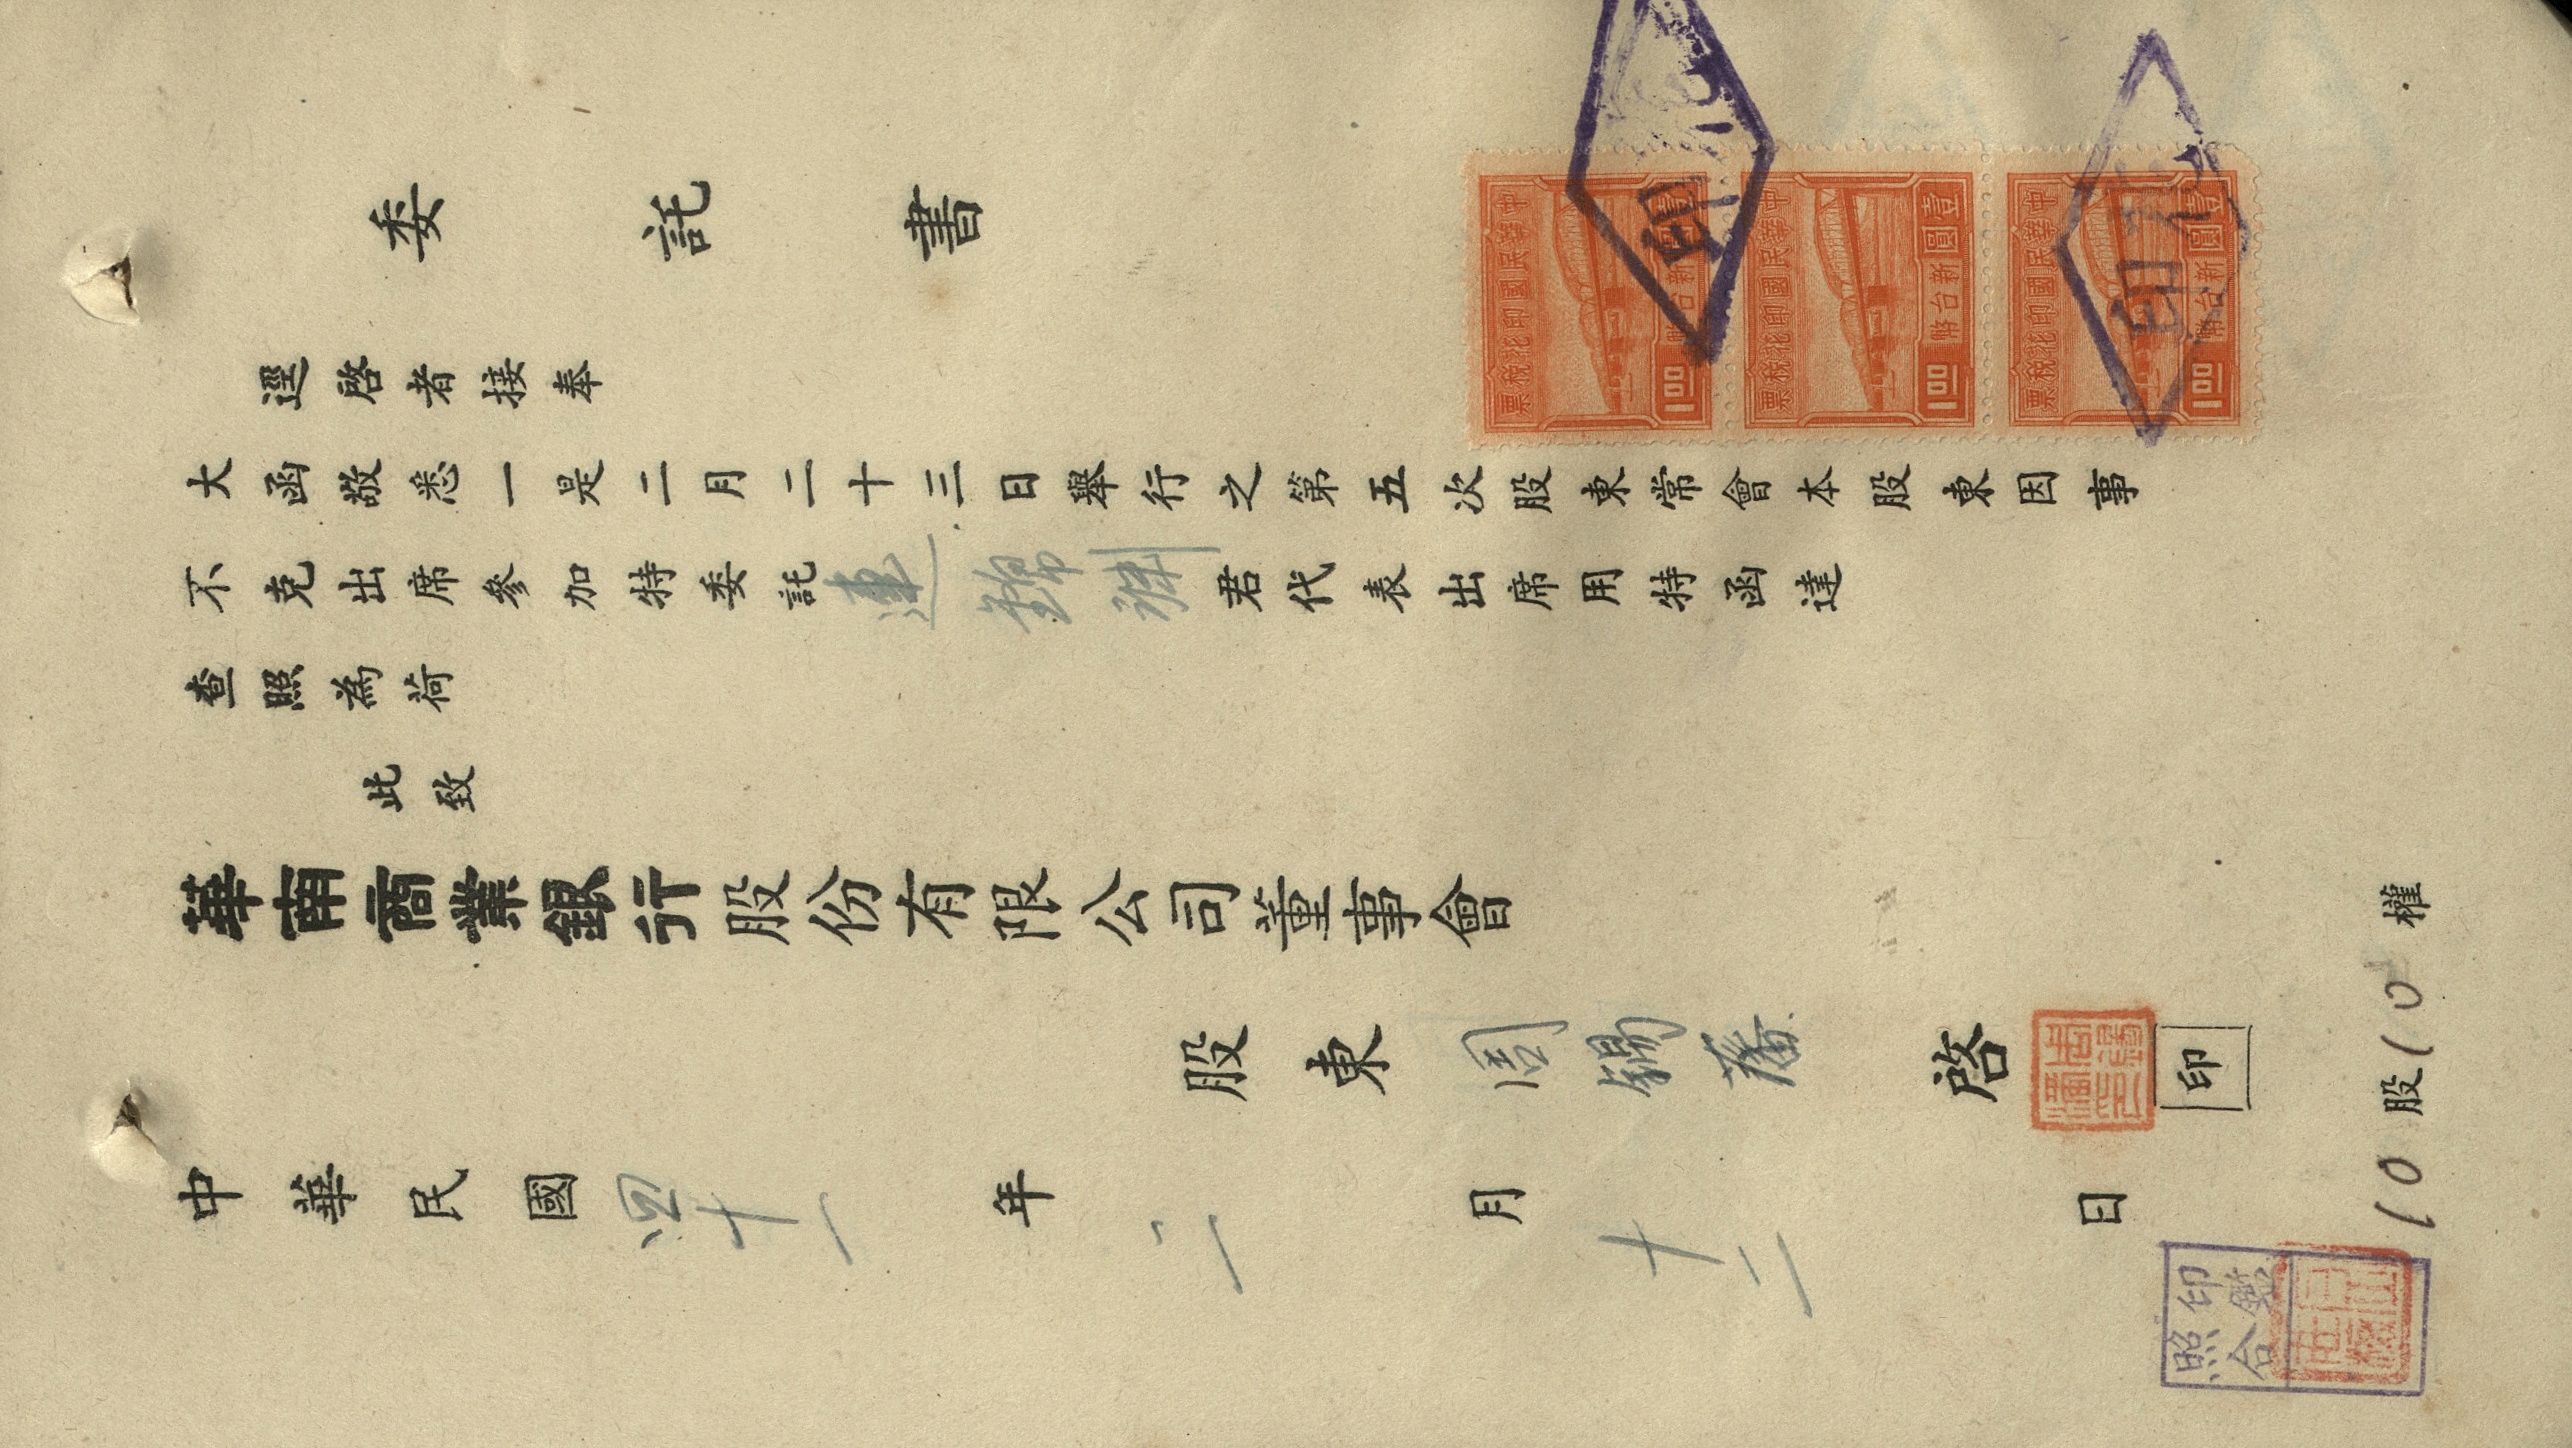 委託書
逕啓者接奉
大函敬悉一是二月二十三日舉行之第五次股東常會本股東因事
不克出席參加特委託連錦 君代表出席用特函達
查照為荷
此致
華南商業銀行股份有限公司董事會
股東 周錫蕃 啓 印
中華民國四十一年二月十二日
10股(10權
印鑑
照合
中華民國印花稅票
新台幣
壹圓
1.00
中華民國印花稅票
新台幣
壹圓
1.00
中華民國印花稅票
新台幣
壹圓
1.00
印
印